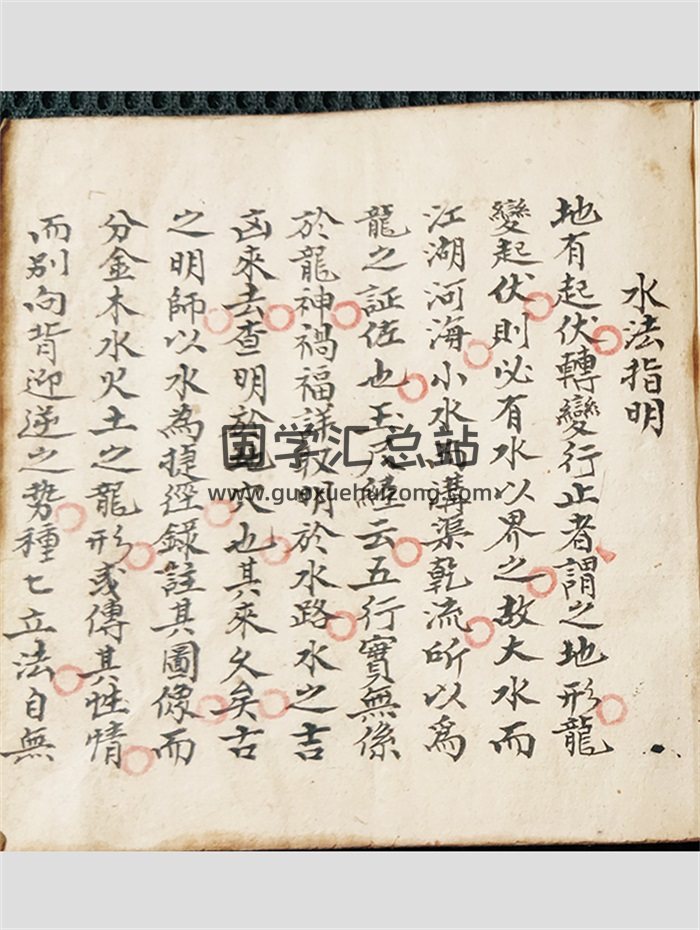 水法指明
地有起伏轉變行止者謂之地形龍
變起伏則必有水以界之故大水而
江湖河海小水溝渠乾流所以爲
龍之証佐也玉尺經云五行實無係
於龍神禍福取明於水路水之吉
凶來去查明於穴也其來久矣古
之明師以水為捷徑録註其圖像而
分金木水火土之龍形或傳其性情
而别向背迎逆之势種七立法自無
国学汇总站
www.guexuehuizong.com